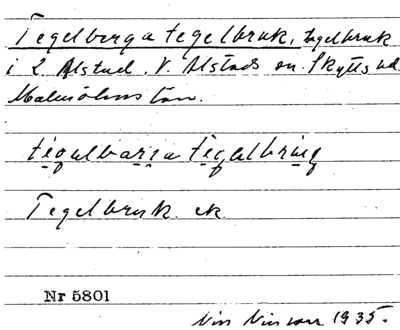 Tegelberga tegelbruk, tegelbruk
i L. Alstad. V. Alstads sn. Skytts hd
Malmöhus län.
Tegelbruk. ek.
Nr 5801
Nils Nilsson 1935.